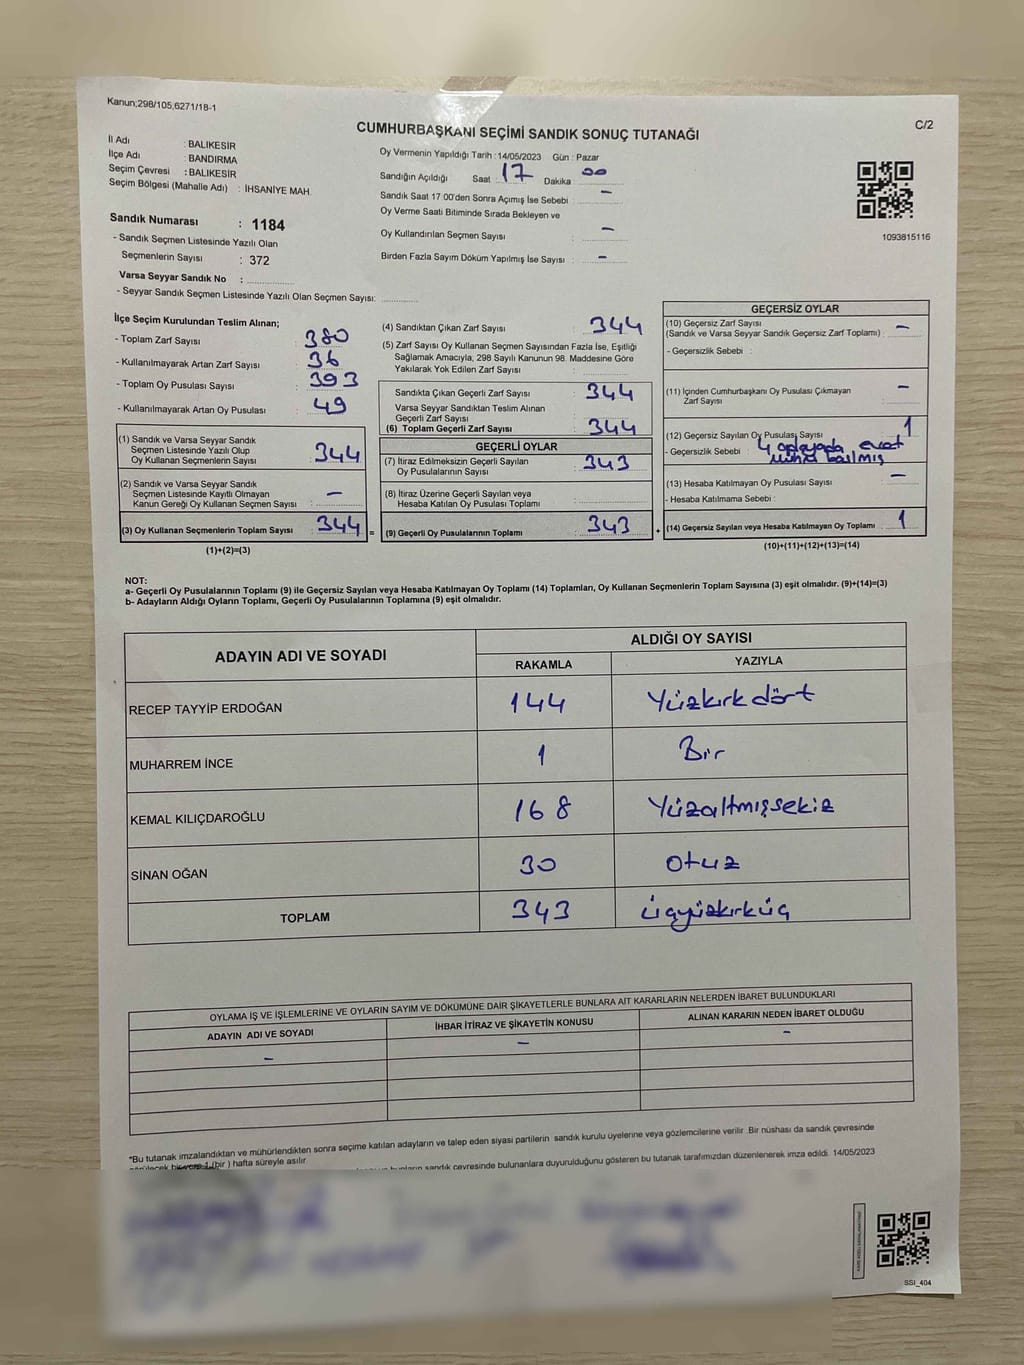 Kanun;298/105,6271/18-1
C/2
CUMHURBAŞKANI SEÇİMİ SANDIK SONUÇ TUTANAĞI
İl Adı : BALIKESİR
İlçe Adı : BANDIRMA
Seçim Çevresi : BALIKESİR
Seçim Bölgesi (Mahalle Adı) : İHSANİYE MAH.
Sandık Numarası : 1184
- Sandık Seçmen Listesinde Yazılı Olan
Seçmenlerin Sayısı : 372
Varsa Seyyar Sandık No :
- Seyyar Sandık Seçmen Listesinde Yazılı Olan Seçmen Sayısı:
Oy Vermenin Yapıldığı Tarih :14/05/2023 Gün : Pazar
Sandığın Açıldığı Saat : 17 Dakika : 00
Sandık Saat 17:00'den Sonra Açımış İse Sebebi : -
Oy Verme Saati Bitiminde Sırada Bekleyen ve
Oy Kullandırılan Seçmen Sayısı : -
Birden Fazla Sayım Döküm Yapılmış İse Sayısı : -
1093815116
İlçe Seçim Kurulundan Teslim Alınan;
- Toplam Zarf Sayısı : 380
- Kullanılmayarak Artan Zarf Sayısı : 36
- Toplam Oy Pusulası Sayısı : 393
- Kullanılmayarak Artan Oy Pusulası : 49
(1) Sandık ve Varsa Seyyar Sandık
Seçmen Listesinde Yazılı Olup
Oy Kullanan Seçmenlerin Sayısı : 344
(2) Sandık ve Varsa Seyyar Sandık
Seçmen Listesinde Kayıtlı Olmayan
Kanun Gereği Oy Kullanan Seçmen Sayısı : -
(3) Oy Kullanan Seçmenlerin Toplam Sayısı : 344 =
(1)+(2)=(3)
(4) Sandıktan Çıkan Zarf Sayısı : 344
(5) Zarf Sayısı Oy Kullanan Seçmen Sayısından Fazla İse, Eşitliği
Sağlamak Amacıyla, 298 Sayılı Kanunun 98. Maddesine Göre
Yakılarak Yok Edilen Zarf Sayısı :
Sandıkta Çıkan Geçerli Zarf Sayısı : 344
Varsa Seyyar Sandıktan Teslim Alınan
Geçerli Zarf Sayısı
(6) Toplam Geçerli Zarf Sayısı : 344
GEÇERLİ OYLAR
(7) İtiraz Edilmeksizin Geçerli Sayılan
Oy Pusulalarının Sayısı : 343
(8) İtiraz Üzerine Geçerli Sayılan veya
Hesaba Katılan Oy Pusulası Toplamı :
(9) Geçerli Oy Pusulalarının Toplamı : 343 +
GEÇERSİZ OYLAR
(10) Geçersiz Zarf Sayısı
(Sandık ve Varsa Seyyar Sandık Geçersiz Zarf Toplamı) : -
- Geçersizlik Sebebi :
(11) İçinden Cumhurbaşkanı Oy Pusulası Çıkmayan
Zarf Sayısı : -
(12) Geçersiz Sayılan Oy Pusulası Sayısı : 1
- Geçersizlik Sebebi : 4 adayada evet
mührü basılmış
(13) Hesaba Katılmayan Oy Pusulası Sayısı : -
- Hesaba Katılmama Sebebi :
(14) Geçersiz Sayılan veya Hesaba Katılmayan Oy Toplamı : 1
(10)+(11)+(12)+(13)=(14)
NOT:
a- Geçerli Oy Pusulalarının Toplamı (9) ile Geçersiz Sayılan veya Hesaba Katılmayan Oy Toplamı (14) Toplamları, Oy Kullanan Seçmenlerin Toplam Sayısına (3) eşit olmalıdır. (9)+(14)=(3)
b- Adayların Aldığı Oyların Toplamı, Geçerli Oy Pusulalarının Toplamına (9) eşit olmalıdır.
ADAYIN ADI VE SOYADI
ALDIĞI OY SAYISI
RAKAMLA YAZIYLA
RECEP TAYYİP ERDOĞAN 144 Yüzkırkdört
MUHARREM İNCE 1 Bir
KEMAL KILIÇDAROĞLU 168 Yüzaltmışsekiz
SİNAN OĞAN 30 Otuz
TOPLAM 343 üçyüzkırküç
OYLAMA İŞ VE İŞLEMLERİNE VE OYLARIN SAYIM VE DÖKÜMÜNE DAİR ŞİKAYETLERLE BUNLARA AİT KARARLARIN NELERDEN İBARET BULUNDUKLARI
ADAYIN ADI VE SOYADI İHBAR İTİRAZ VE ŞİKAYETİN KONUSU ALINAN KARARIN NEDEN İBARET OLDUĞU
- - -
*Bu tutanak imzalandıktan ve mühürlendikten sonra seçime katılan adayların ve talep eden siyasi partilerin sandık kurulu üyelerine veya gözlemcilerine verilir .Bir nüshası da sandık çevresinde
görülecek bir yere 1 (bir ) hafta süreyle asılır.
sandık çevresinde bulunanlara duyurulduğunu gösteren bu tutanak tarafımızdan düzenlenerek imza edildi. 14/05/2023
SSI_404